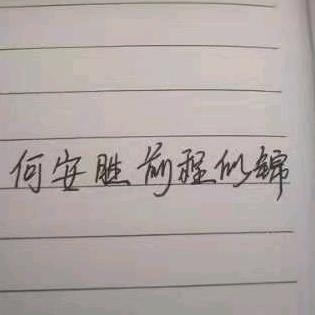 何安胜前程似锦